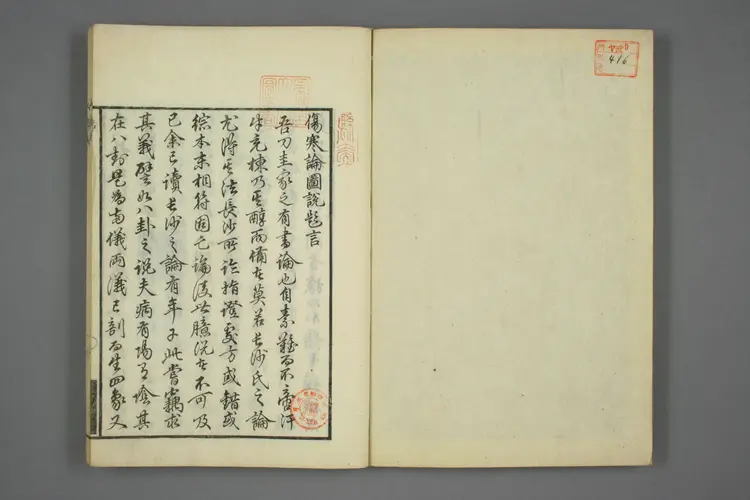 傷寒論圖說題言
吾刀圭家之有書論也自素難而不啻汗
牛充棟乃其醇而備者莫若長沙氏之論
尤得其法長沙所論指證處方或錯或
綜本末相符固已論後世臆說者不可及
已余已讀長沙之論有年于此嘗竊求
其義譬如八卦之說夫病有陽有陰其
在八卦是為兩儀兩儀已剖而生四象又
416